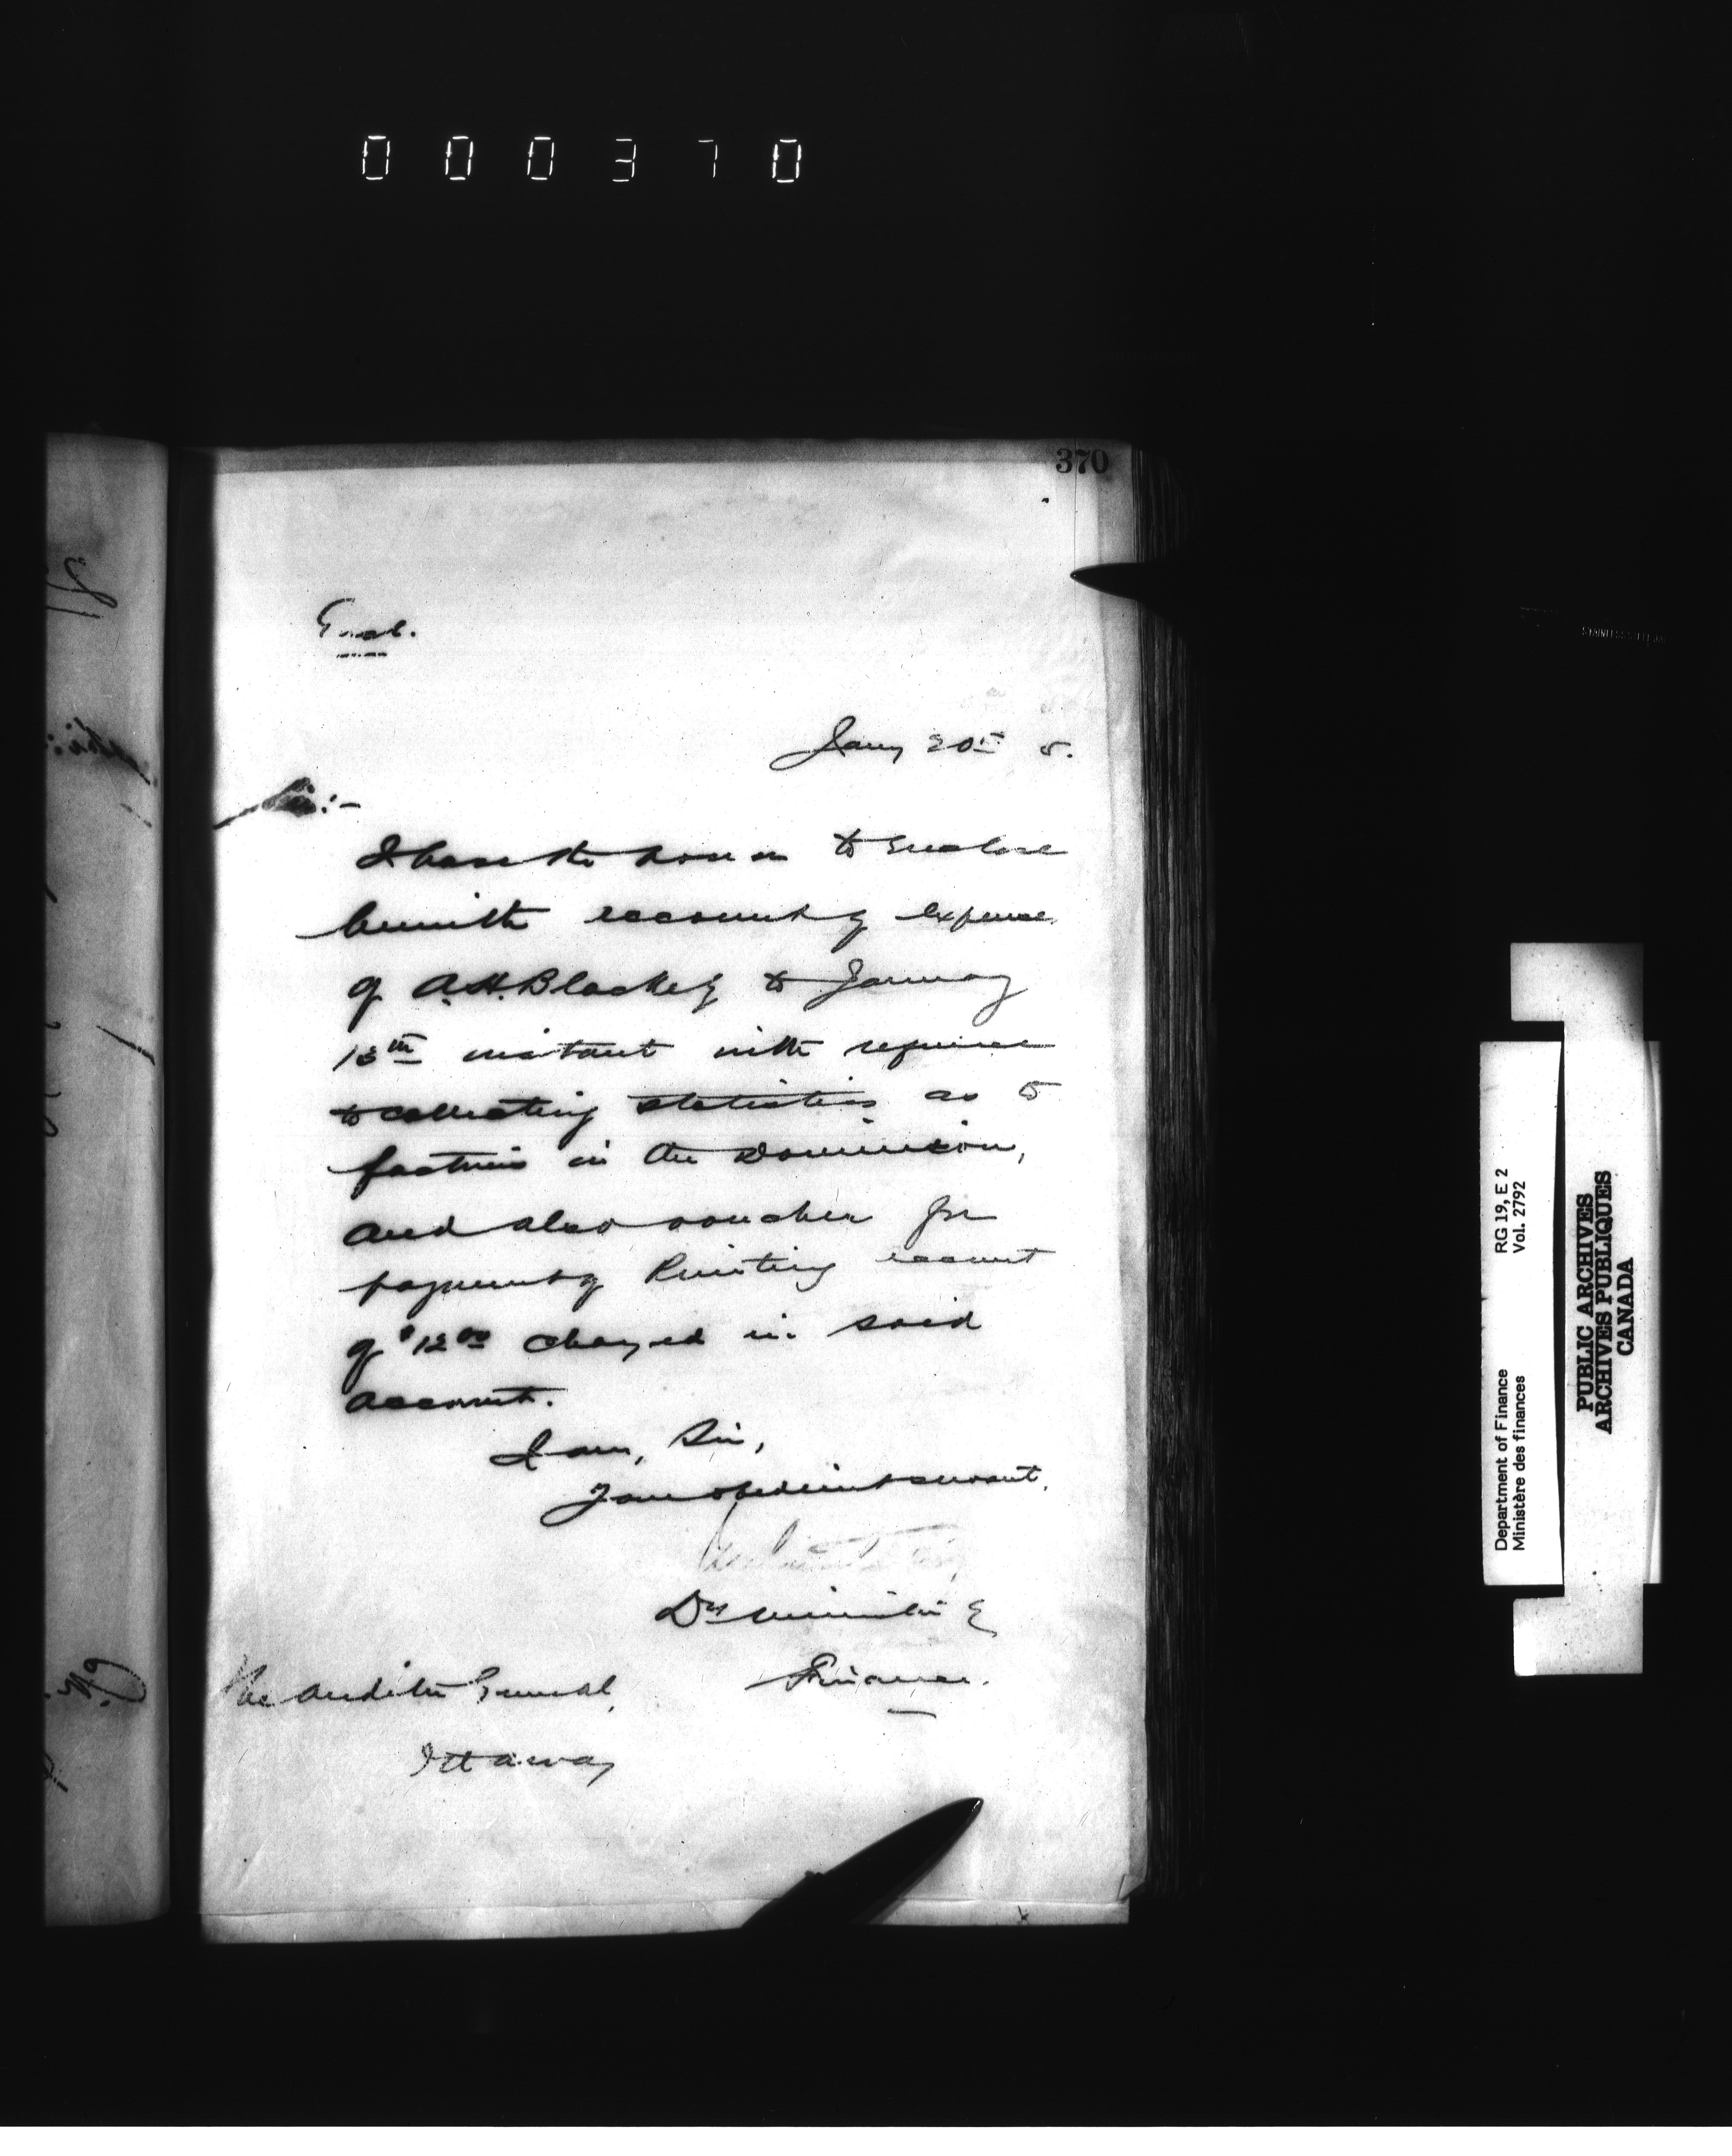 000370
370
Encl.
Jany 20th 5.
Sir:-
I have the honor to enclose
herewith account of expense
of A.H. Blackey to January
15th instant with reference
to collecting statistics as to
factories in the Dominion,
and also voucher for
payment of Printing account
of $12.00 charged in said
account.
I am, Sir,
Your obedient servant,
Dy Minister of
Finance.
The Auditor General,
Ottawa
Department of Finance RG 19, E 2
Ministère des finances Vol. 2792
PUBLIC ARCHIVES
ARCHIVES PUBLIQUES
CANADA